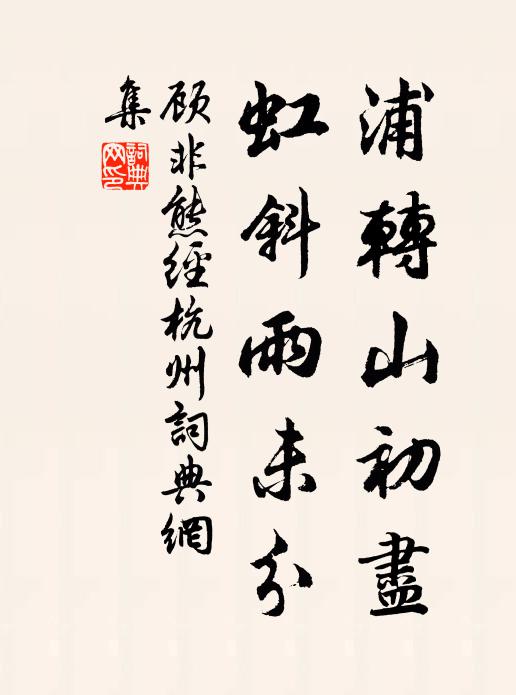 浦轉山初盡
虹斜雨未分
顾非熊經杭州詞典網
集
詞典
网印